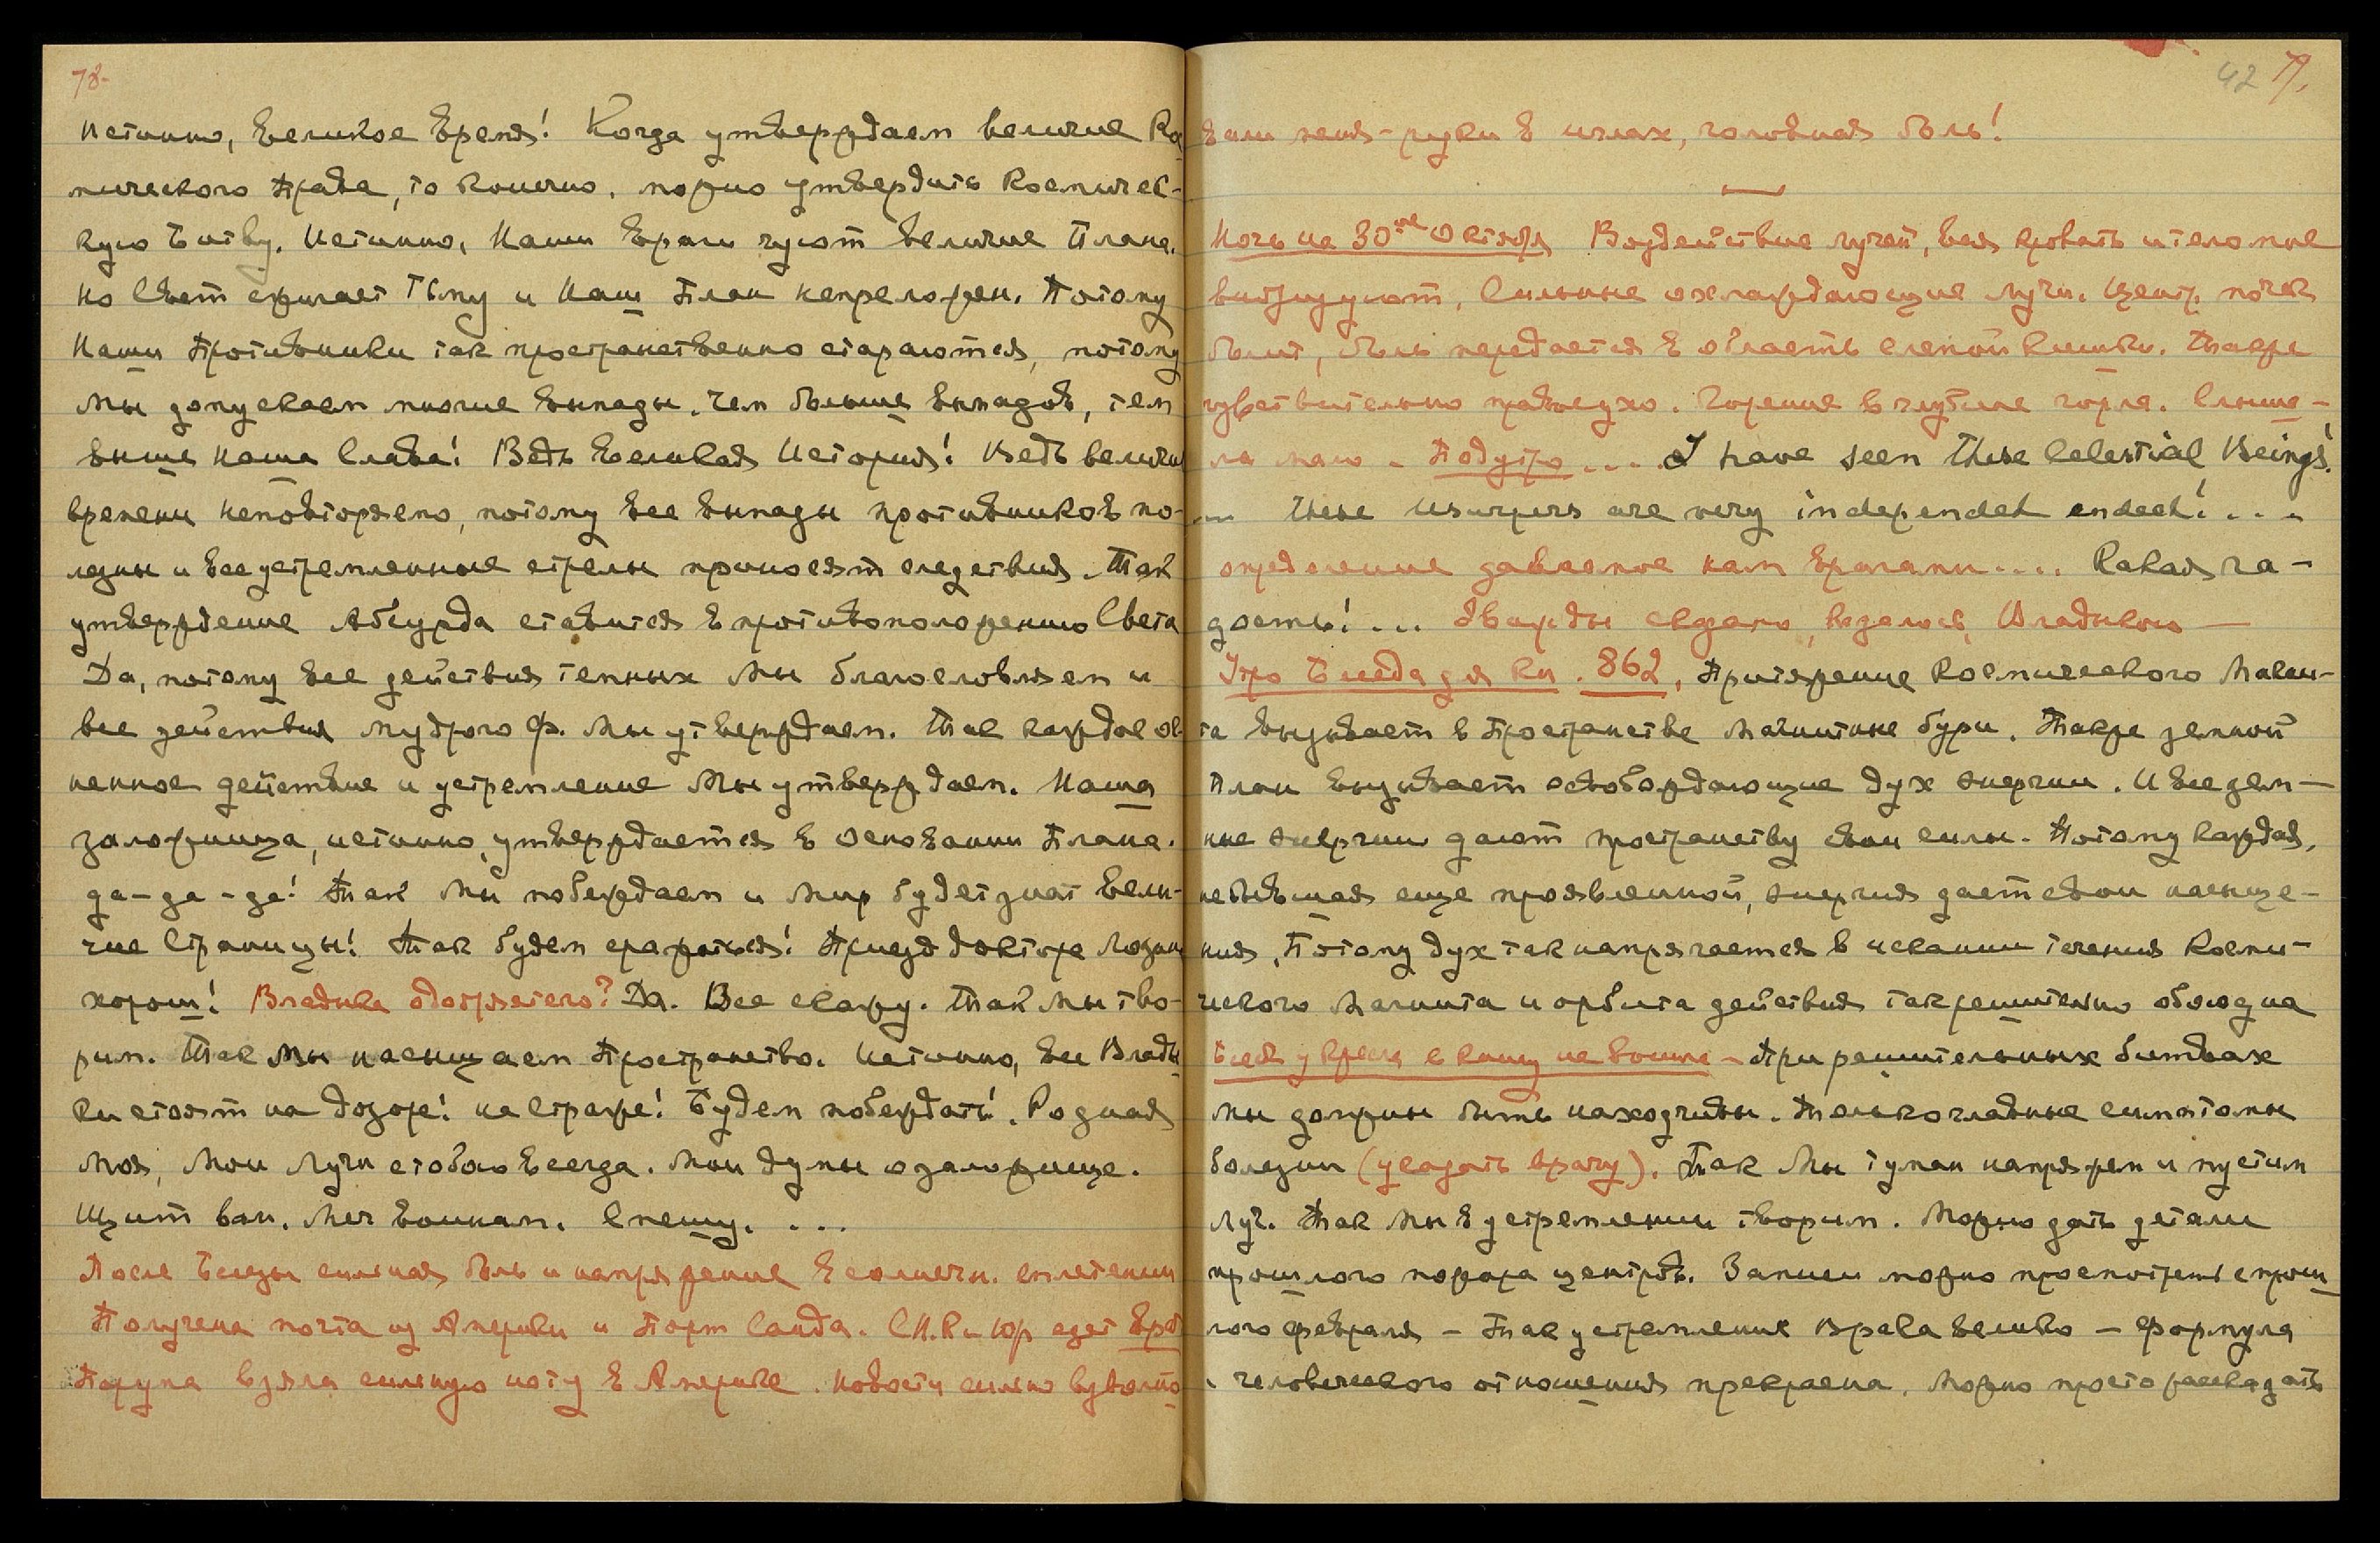 78.
Истинно, Великое Время! Когда утверждаем величие Ко
мического Права, то конечно, можно утвердить Космичес-
кую Битву. Истинно, Наши Враги чуют величие Плана.
Но Свет сжигает Тьму и Наш План непреложен. Потому
Наши Противники так пространственно стараются, потому
Мы допускаем многие выпады. Чем больше выпадов, тем
выше Наша Слава! Ведь Великая История! Ведь величие
времени неповторяемо, потому все выпады противников по-
лезны и все устремленные стрелы приносят следствия. Так
утверждение Абсурда ставится в противоположению Света
Да, потому все действия темных Мы благословляем и
все действия мудрого Ф. Мы утверждаем. Так каждое ог-
ненное действие и устремление Мы утверждаем. Наша
заложница, истинно, утверждается в основании Плана.
да-да-да! Так Мы побеждаем и Мир будет знат Вели-
чие Страницы! Так будем сражаться! Приезд доктора Лозин
хорош! Владыка одобряет его? Да. Все скажу. Так Мы тво-
рим. Так Мы насыщаем Пространство. Истинно, все Влады
ки стоят на дозоре! на Страже! Будем побеждать! Родная
Моя, Мои Лучи с тобою всегда. Мои думы о заложнице.
Щит вам. Меч воинам. Спешу. ...
После Беседы сильная боль и напряжение в солнечн. сплетении
Получена почта из Америки и Порт Саида. С.Н.К и Юр едет
взяла сильную ноту в Америке. Новости сильно взволно
42 79.
вали меня - руки в иглах, головная боль!
Ночь на 30ое Октября Воздействие лучей, вся кровать и тело мое
вибрируют, Сильные охлаждающие лучи. Центр. почек
болит, боль передается в область слепой кишки. Также
чувствительно правое ухо. Горение в глубине горла. Слыша-
ла мало - Под утро .... I have seen these Celestial Beings!
... these Usurpers are very independet endeet! ...
определение даваемое нам врагами.... Какая га-
дость! ... дважды сказано, казалось, Владыкою —
Утро Беседа для кн. 862. Притяжение Космического Магни-
та вызывает в Пространстве Магнитные бури. Также земной
план вызывает освобождающие дух энергии. И все зем-
ные энергии дают пространству свои силы. Потому каждая,
не бывшая еще проявленной, энергия дает свои насыще-
ния. Потому дух так напрягается в искании течения Косми-
ческого Магнита и орбита действия так решительно обоюдна
Беседа у кресла в книгу не вошла - При решительных битвах
мы должны быть находчивы. Только главные симптомы
болезни (указать врачу). Так Мы туман напряжем и пустим
луч. Так Мы в устремлении творим. Можно дать детали
прошлого пожара центров. Записи можно просмотреть с прош
лого февраля - Так устремление Врага велико - Формула
человеческого отношения прекрасна. Можно просто рассказать